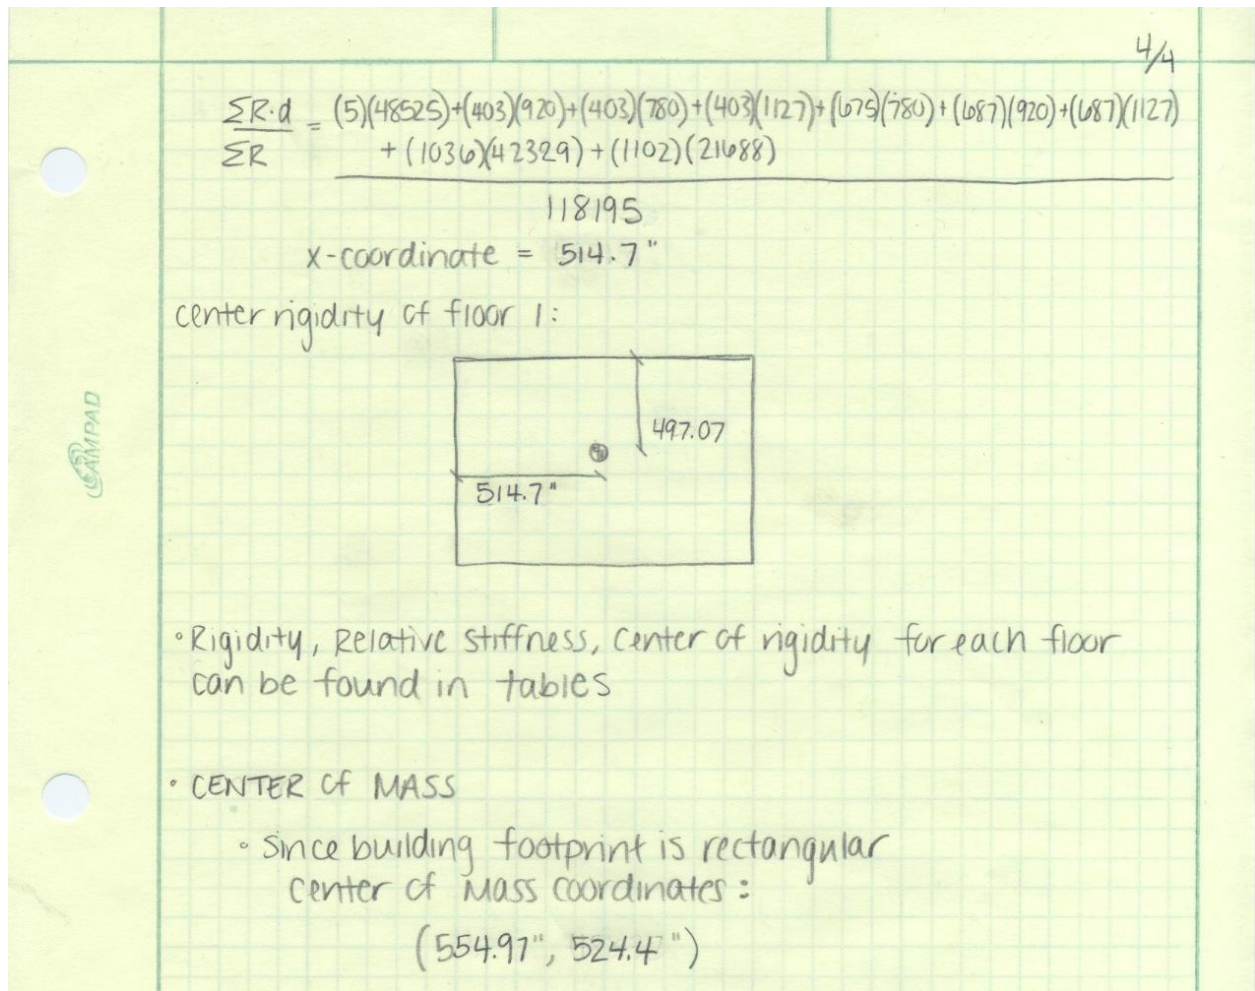 4/4
ΣR·d = (5)(48525)+(403)(920)+(403)(780)+(403)(1127)+(675)(780)+(687)(920)+(687)(1127)
ΣR + (1036)(42329)+(1102)(21688)
118195
x-coordinate = 514.7"
center rigidity of floor 1:
497.07
514.7"
CAMPAD
• Rigidity, Relative stiffness, center of rigidity for each floor
can be found in tables
• CENTER Of MASS
• Since building footprint is rectangular
center of Mass coordinates:
(554.97", 524.4")